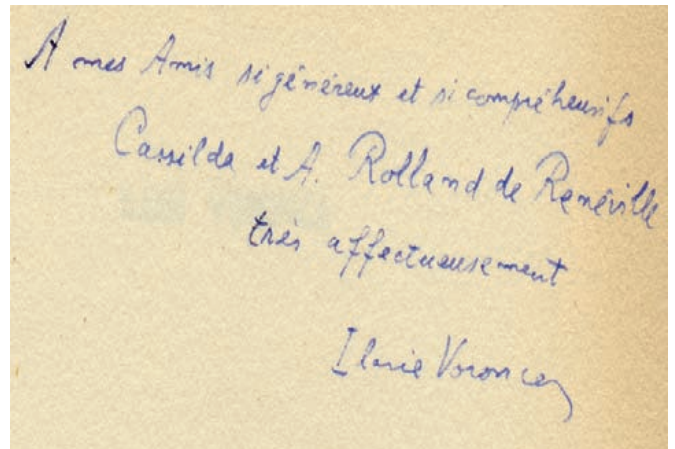 A mes Amis si généreux et si compréhensifs
Cassilda et A. Rolland de Renéville
très affectueusement
Ilarie Voronca